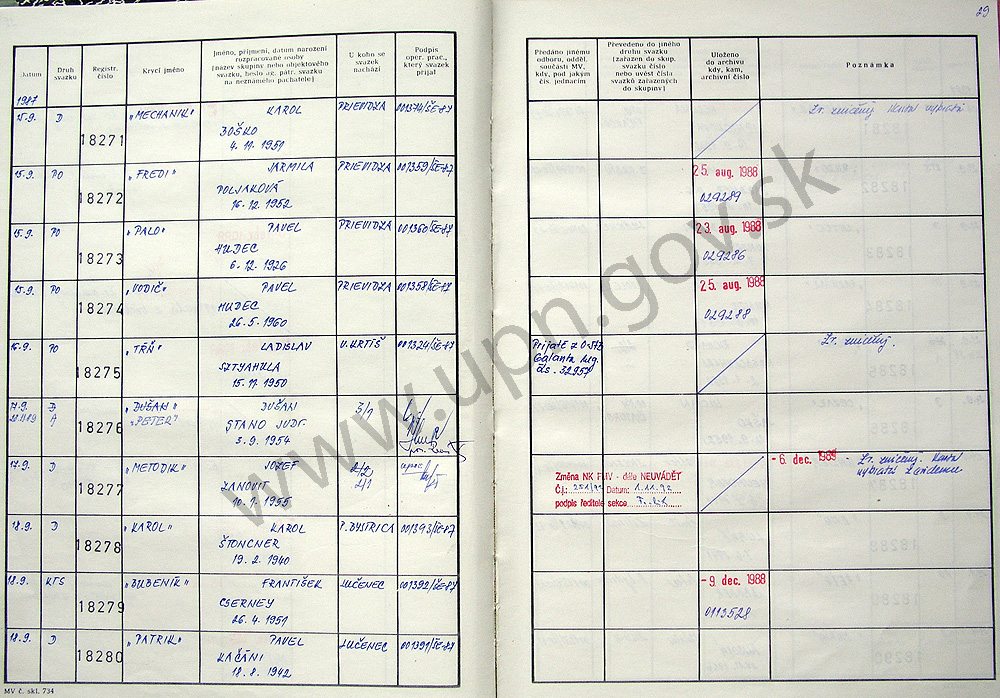 29
Datum
Druh svazku
Registr. číslo
Krycí jméno
Jméno, příjmení, datum narození
rozpracované osoby
(název skupiny nebo objektového
svazku, heslo ag. pátr. svazku
na neznámého pachatele)
U koho se
svazek
nachází
Podpis
oper. prac.,
který svazek
přijal
Předáno jinému
odboru, odděl.
součásti MV,
kdy, pod jakým
čís. jednacím
Převedeno do jiného
druhu svazku
(zařazen do skup.
svazku číslo
nebo uvést čísla
svazků zařazených
do skupiny)
Uloženo
do archivu
kdy, kam,
archivní číslo
Poznámka
1987
15.9. D 18271 "MECHANIK" KAROL PRIEVIDZA 001374/ŠE-87
BOŠKO
4. 11. 1951
Zv. zničený
15.9. PO 18272 "FREDI" JARMILA PRIEVIDZA 001359/ŠE-87
POLJAKOVÁ
16. 12. 1952
25. aug. 1988
029289
15.9. PO 18273 "PALO" PAVEL PRIEVIDZA 001360/ŠE-87
HUDEC
6. 12. 1926
23. aug. 1988
029286
15.9. PO 18274 "VODIČ" PAVEL PRIEVIDZA 001358/ŠE-87
HUDEC
26. 5. 1960
25. aug. 1988
029288
16.9. PO 18275 "TŔŇ" LADISLAV V. KRTÍŠ 001324/ŠE-87
SZTYAHULA
15. 11. 1950
Galanta
32957
Zv. zničený.
17.9. D 18276 "DUŠAN" DUŠAN 3/1
A "PETER" STANO JUDR.
3. 9. 1954
17.9. D 18277 "METODIK" JOZEF 2/2
2/1
10. 7. 1955
Změna NK FMV - dále NEUVÁDĚT
Č.j.: Datum: 1.11.92
podpis ředitele sekce
- 6. dec. 1989 - Zv. zničený.
18.9. D 18278 "KAROL" KAROL P. BYSTRICA 001393/ŠE-87
ŠTONCNER
19. 2. 1940
18.9. KTS 18279 "DUBENÍK" FRANTIŠEK LUČENEC 001392/ŠE-87
CSERNEY
26. 4. 1951
- 9. dec. 1988
0113528
18.9. D 18280 "PATRIK" PAVEL LUČENEC 001391/ŠE-87
KAČÁNI
18. 8. 1942
MV č. skl. 734
www.upn.gov.sk